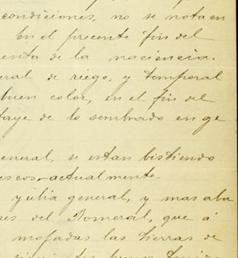 condiciones, no se nota en
en el presente fin del
enta de la naciencia.
eral de riego, y temporal
buen color, en el fin del
taje de lo sembrado en ge
eneral, se estan bistiendo
escos actualmente.
y ulia general, y mas aba
res del Romeral, que á
mojadas las tierras de